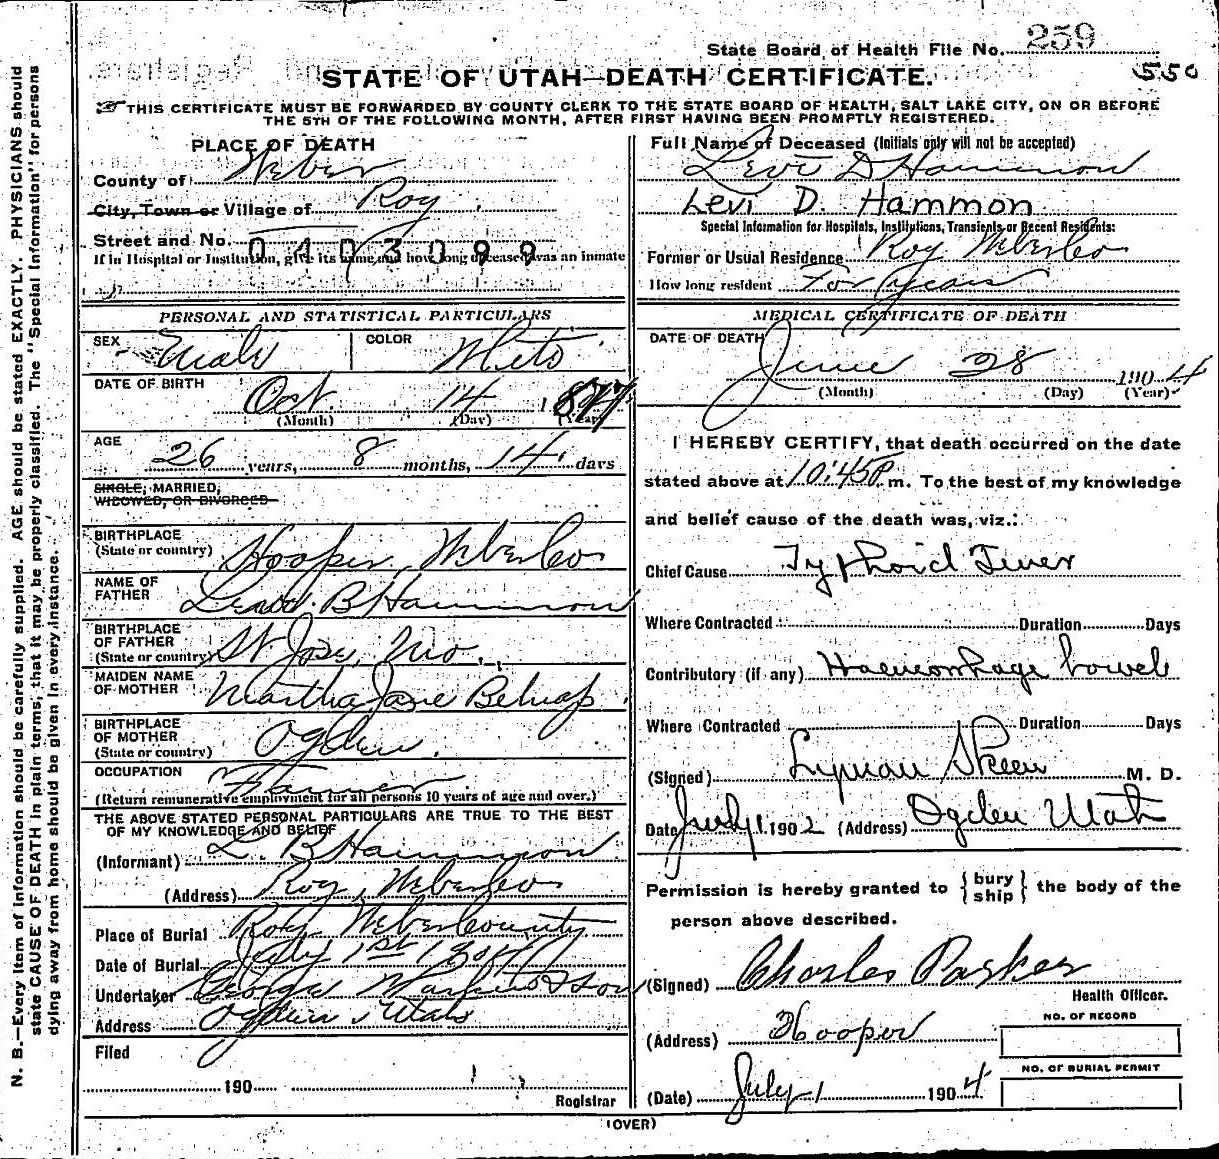 State Board of Health File No. 259
550
STATE OF UTAH—DEATH CERTIFICATE.
THIS CERTIFICATE MUST BE FORWARDED BY COUNTY CLERK TO THE STATE BOARD OF HEALTH, SALT LAKE CITY, ON OR BEFORE
THE 5TH OF THE FOLLOWING MONTH, AFTER FIRST HAVING BEEN PROMPTLY REGISTERED.
PLACE OF DEATH
County of Weber
City, Town or Village of Roy
Street and No.
0403099
If in Hospital or Institution, give its name and how long deceased was an inmate
PERSONAL AND STATISTICAL PARTICULARS
SEX Male COLOR White
DATE OF BIRTH
Oct 14 1877
(Month) (Day) (Year)
AGE
26 years, 8 months, 14 days
SINGLE, MARRIED,
WIDOWED, OR DIVORCED
BIRTHPLACE
(State or country) Hooper, Weber Co
NAME OF
FATHER Levi B Hammon
BIRTHPLACE
OF FATHER
(State or country) St Jose, Mo.
MAIDEN NAME
OF MOTHER Martha Jane Belnap
BIRTHPLACE
OF MOTHER
(State or country) Ogden.
OCCUPATION Farmer
(Return remunerative employment for all persons 10 years of age and over.)
THE ABOVE STATED PERSONAL PARTICULARS ARE TRUE TO THE BEST
OF MY KNOWLEDGE AND BELIEF
(Informant) L. B Hammon
(Address) Roy, Weber Co
Place of Burial Roy Weber County
Date of Burial July 1st 1904
Undertaker George & Son
Address Ogden Utah
Filed
190
Registrar
Full Name of Deceased (Initials only will not be accepted)
Levi D Hammon
Levi D. Hammon
Special Information for Hospitals, Institutions, Transients or Recent Residents:
Former or Usual Residence Roy Weber Co
How long resident For years
MEDICAL CERTIFICATE OF DEATH
DATE OF DEATH
June 28 1904
(Month) (Day) (Year)
I HEREBY CERTIFY, that death occurred on the date
stated above at 10:45 P. m. To the best of my knowledge
and belief cause of the death was, viz.:
Chief Cause Typhoid Fever
Where Contracted Duration Days
Contributory (if any) Haemorrhage bowels
Where Contracted Duration Days
(Signed) Lyman Skeen M. D.
Date July 1 1902 (Address) Ogden Utah
Permission is hereby granted to { bury ship } the body of the
person above described.
(Signed) Charles Parker
Health Officer.
(Address) Hooper
NO. OF RECORD
NO. OF BURIAL PERMIT
(Date) July 1 1904
(OVER)
N. B.—Every item of information should be carefully supplied. AGE should be stated EXACTLY. PHYSICIANS should
state CAUSE OF DEATH in plain terms, that it may be properly classified. The "Special Information" for persons
dying away from home should be given in every instance.